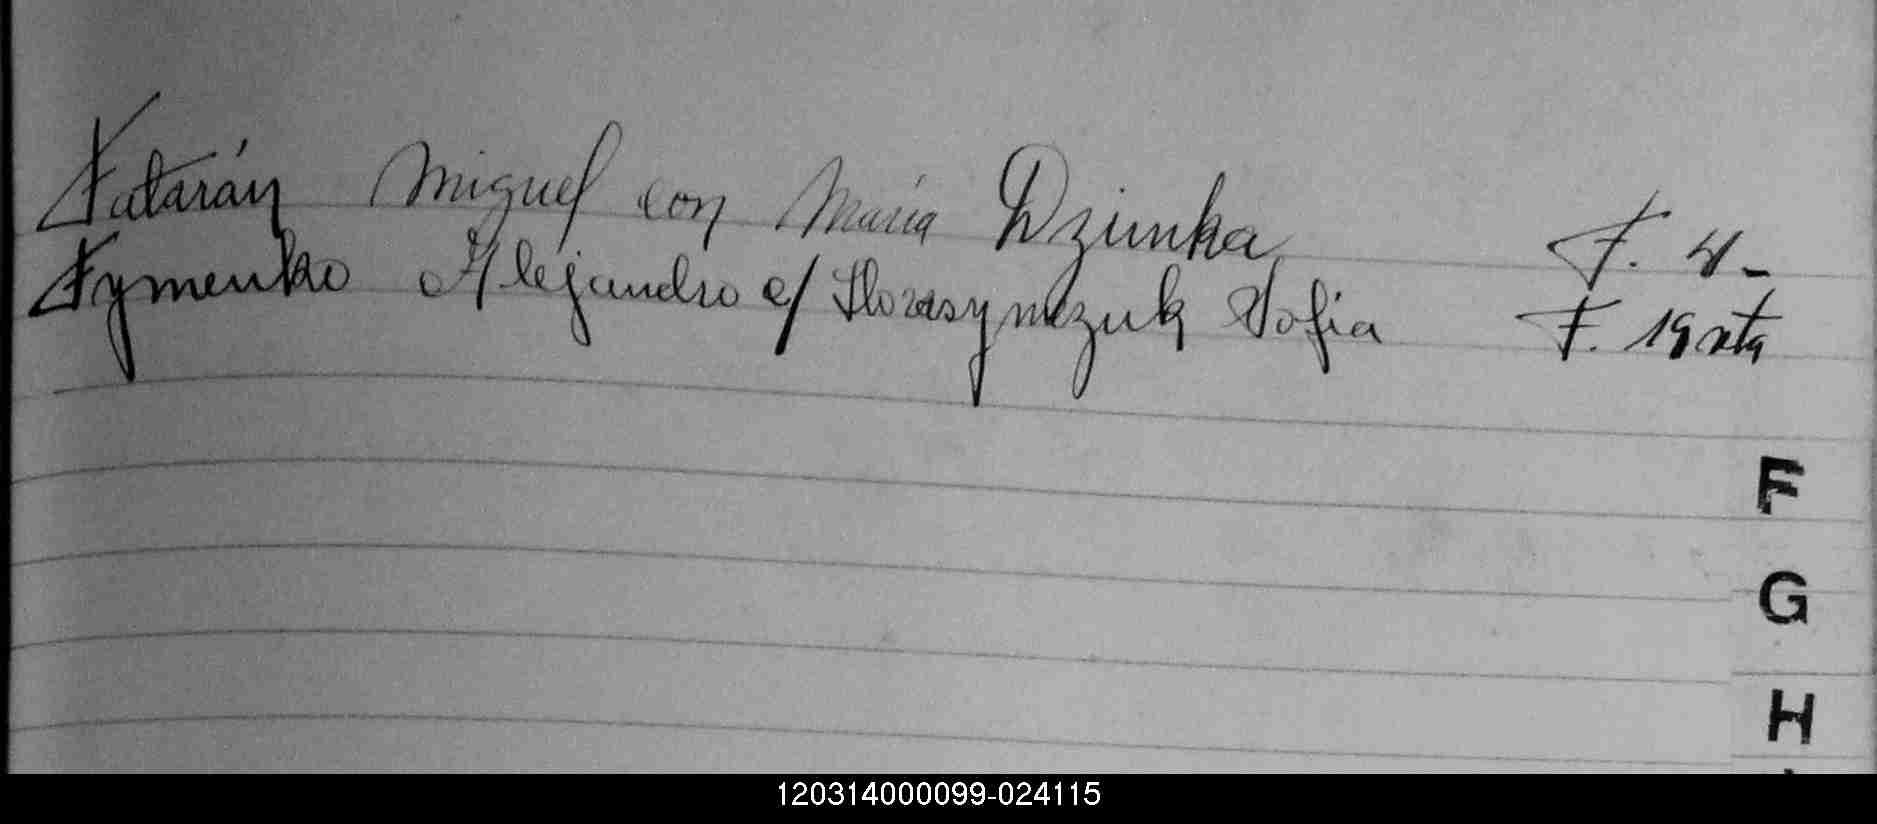 Fatarán Miguel con María Dziunka F. 4-
Fymenko Alejandro c/ Horasymczuk Sofia F. 19 vta
F
G
H
120314000099-024115